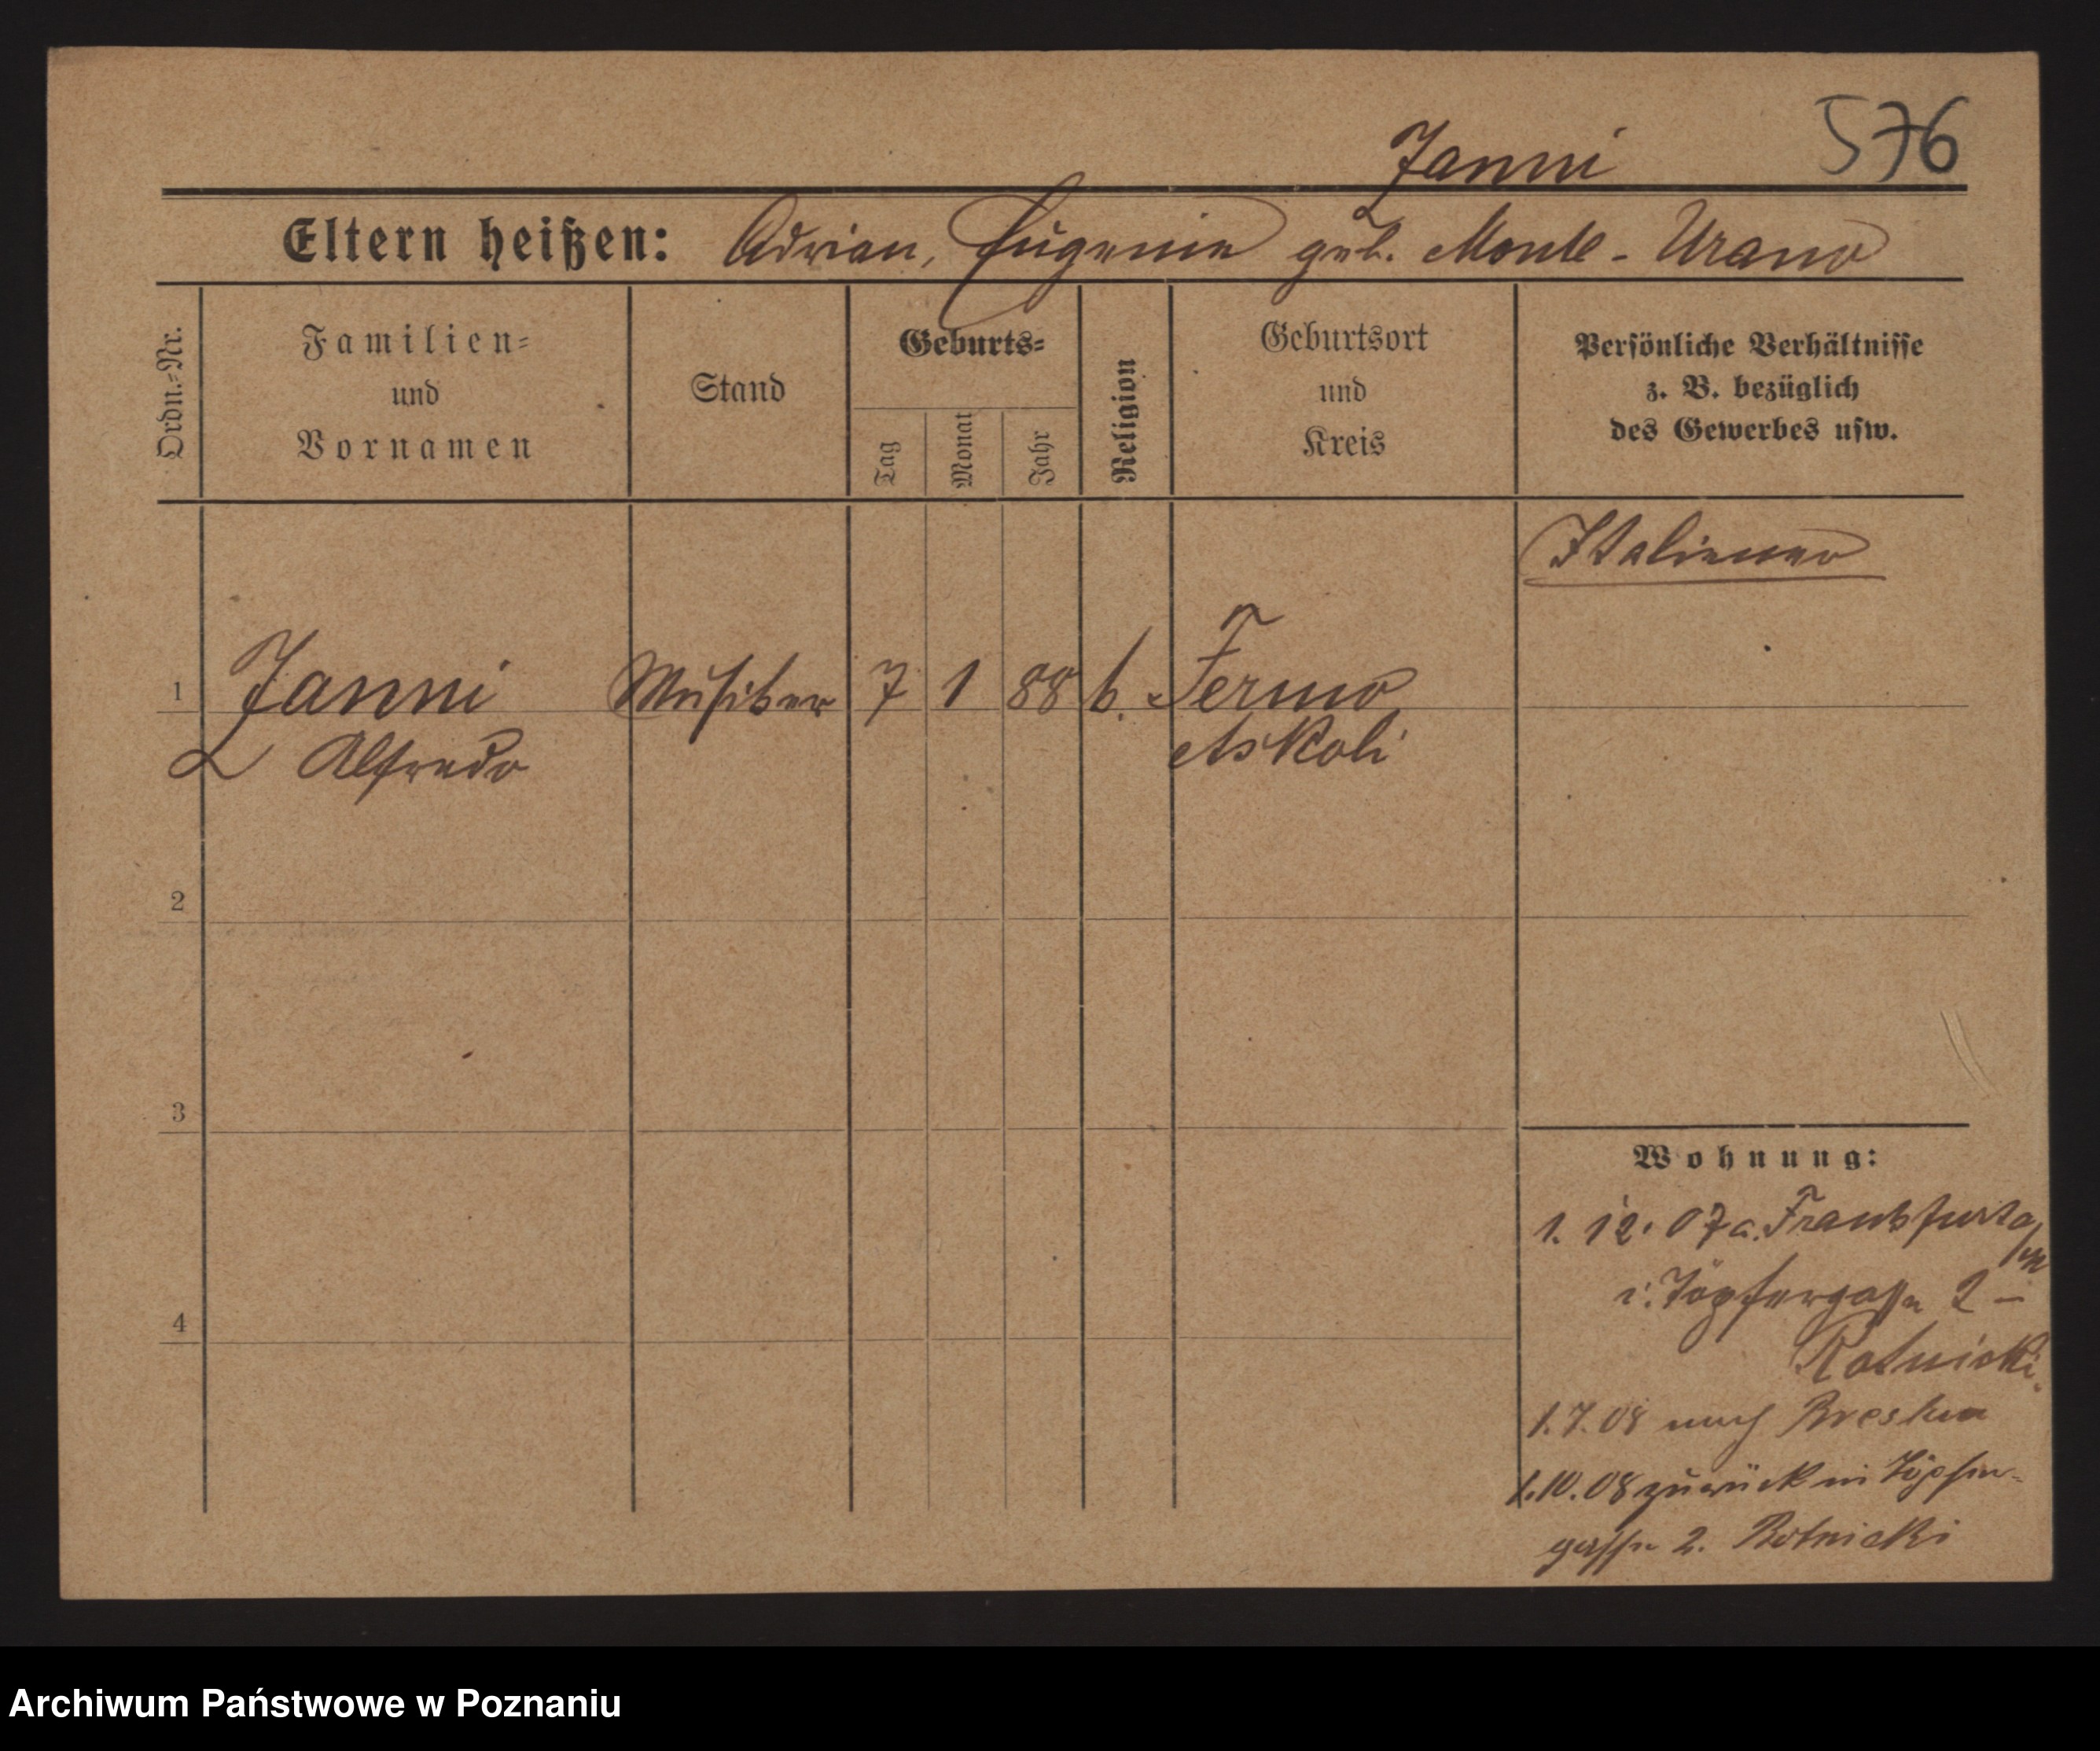 Janni 576
Eltern heißen: Adrian, Eugenie geb. Monte-Urano
Ordn.-Nr.
Familien-
und
Vornamen
Stand
Geburts-
Tag
Monat
Jahr
Religion
Geburtsort
und
Kreis
Persönliche Verhältnisse
z. B. bezüglich
des Gewerbes usw.
Italiener
1 Janni Musiker 7 1 88 k. Fermo
Alfredo Askoli
2
3
4
Wohnung:
1. 12. 07 a. Frankfurt a/M
i. Töpfergasse 2 –
Rotnicki.
1.7.08 nach Breslau
1.10.08 zurück in Töpfer-
gasse 2. Rotnicki
Archiwum Państwowe w Poznaniu